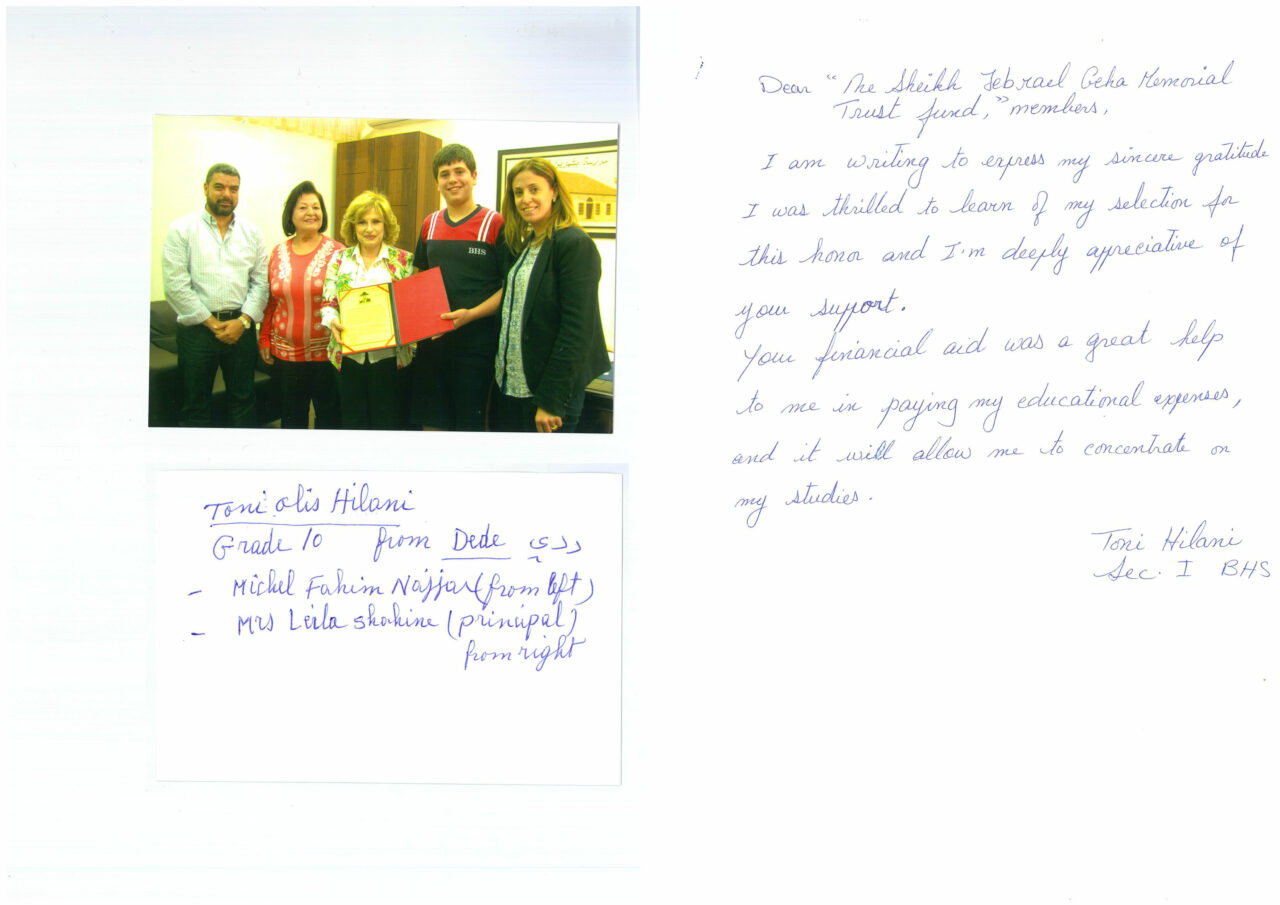 BHS
Toni olis Hilani
Grade 10 from Dede ددي
- Michel Fahim Najjar (from left)
- Mrs Leila Shahine (principal)
from right
Dear "The Sheikh Jebrael Geha Memorial
Trust fund," members,
I am writing to express my sincere gratitude
I was thrilled to learn of my selection for
this honor and I'm deeply appreciative of
your support.
Your financial aid was a great help
to me in paying my educational expenses,
and it will allow me to concentrate on
my studies.
Toni Hilani
Sec. I BHS